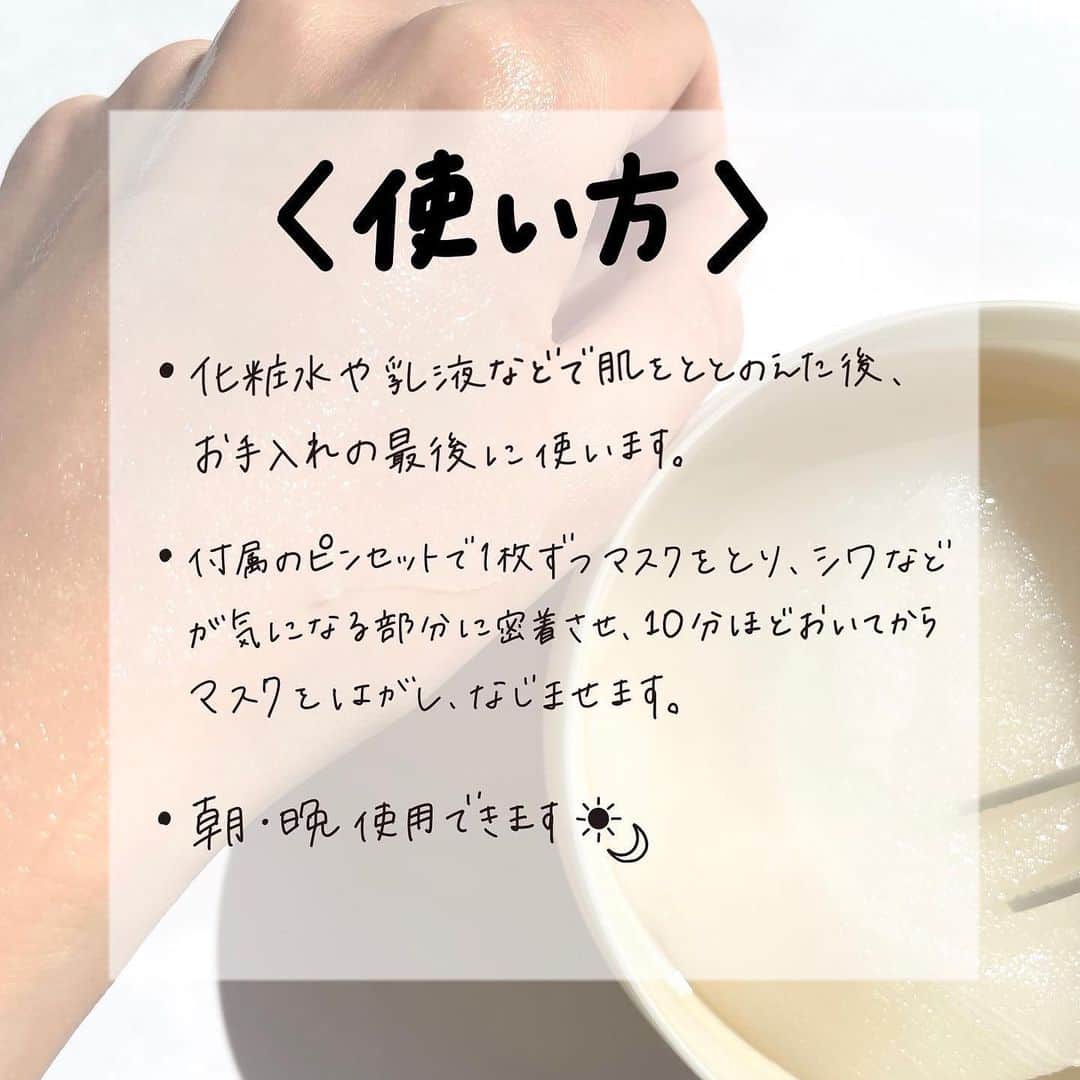 〈使い方〉
• 化粧水や乳液などで肌をととのえた後、
お手入れの最後に使います。
• 付属のピンセットで1枚ずつマスクをとり、シワなど
が気になる部分に密着させ、10分ほどおいてから
マスクをはがし、なじませます。
• 朝・晩 使用できます